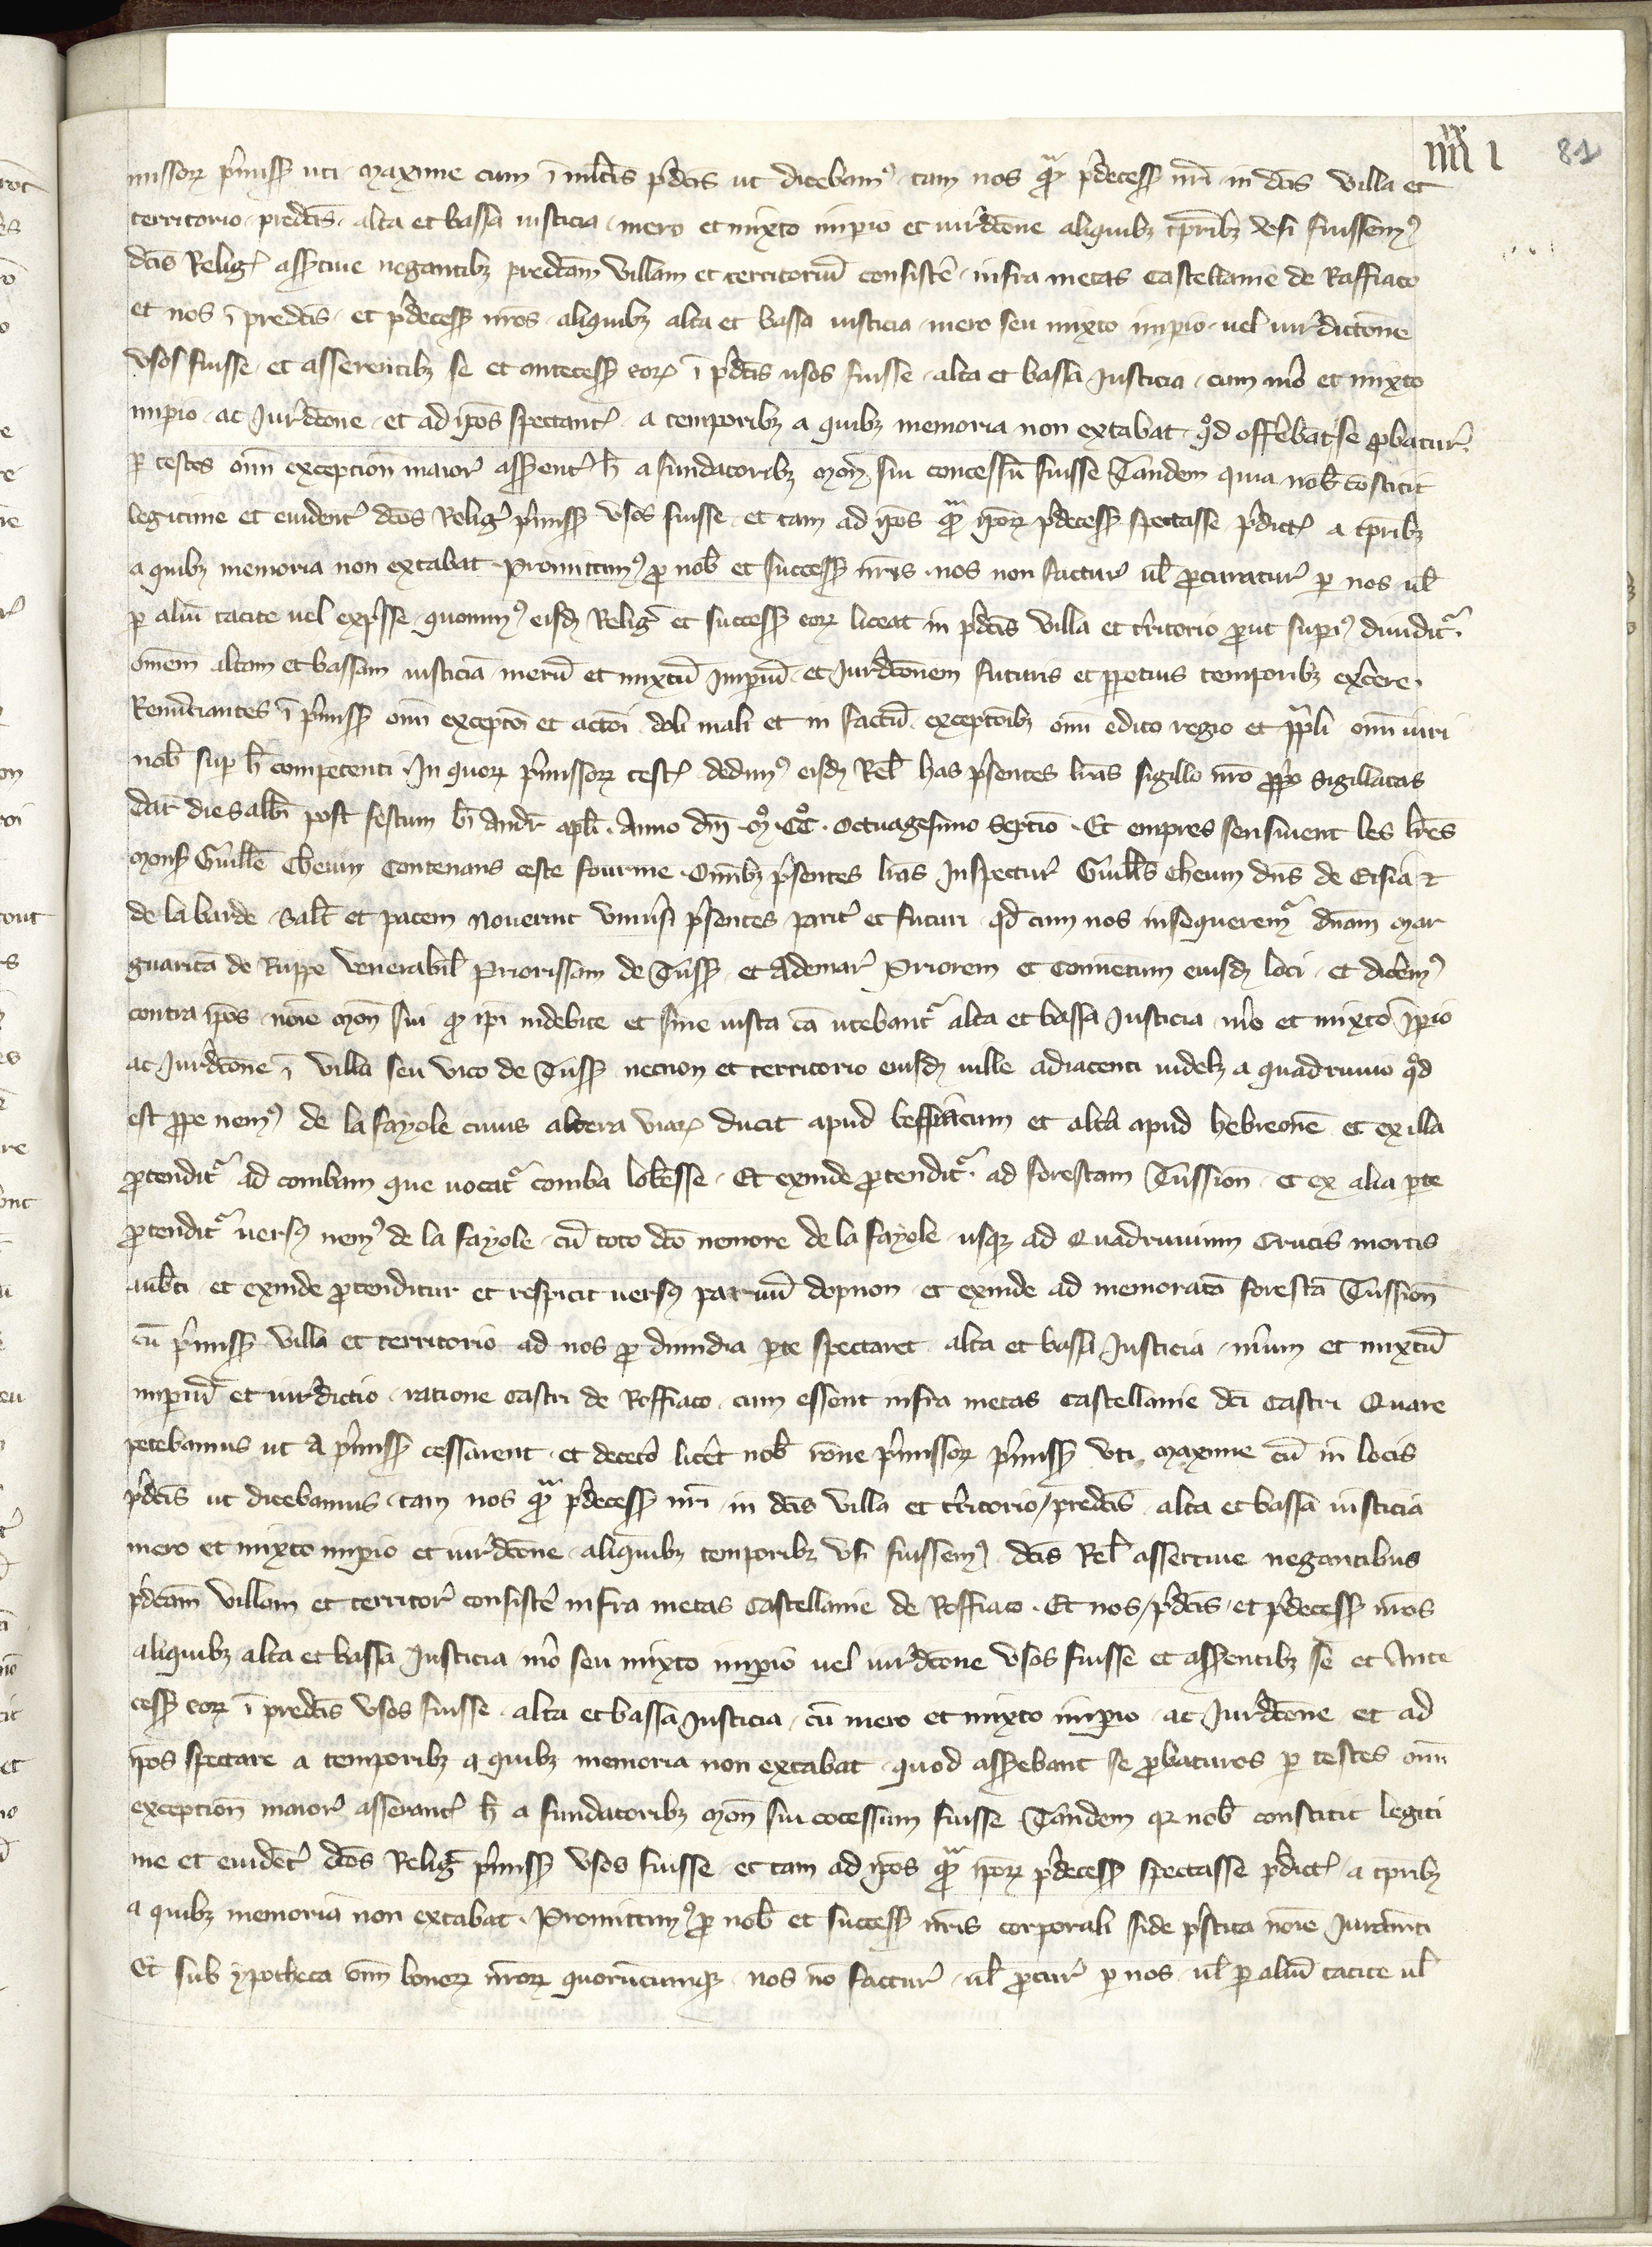 iiiixx i 81
missorꝝ p̄missꝭ uti maxime cum ī mltis p̄dcis ut dicebamꝰ tam nos qͣm p̄decessꝭ nr̄i in dcis villa et
territorio predcis alta et bassa iusticia mero et mixto imꝑio et iur̄dcōne aliquibꝫ tꝑribꝫ usi fuissemꝰ
dcis Religꝭ asstiue negantibꝫ predcam villam et territoriū consistē infra metas castellanie de Raffiaco
et nos ī predcis et p̄decessꝭ nr̄os aliquibꝫ alta et bassa iusticia mero seu mixto imꝑio uel iur̄dictōne
vsos fuisse et asserentibꝫ se et antecessꝭ eorꝝ ī p̄dcis usos fuisse alta et bassa Justicia cum mēo et mixto
imꝑio ac Jur̄dcōne et ad ip̄os spectantꝭ a temporibꝫ a quibꝫ memoria non extabat qd offēbāt se ꝓbatur
ꝑ testes om̄i exception maior̄ asserentꝭ h̄ a fundatoribꝫ mon̄ sui concessū fuisse Tandem quia nob̄ cōstitit
legitime et euident̄ dcōs Religꝭ p̄missꝭ vsos fuisse et tam ad ip̄os qͣm ip̄orꝝ p̄decessꝭ spectasse p̄dictꝭ a tꝑribꝫ
a quibꝫ memoria non extabat Promittimꝰ ꝓ nob̄ et successꝭ nr̄is nos non factur̄ ul̄ ꝓcuratur̄ ꝑ nos ul̄
ꝑ aliū tacite uel exp̄sse quominꝰ eisdꝫ Religꝭ et successꝭ eorꝝ liceat in p̄dcis villa et tr̄ritorio ꝓut supiꝰ diuiditͬ
om̄em altam et bassam iusticiā merū et mixtū Imꝑiū et Jur̄dcōnem futuris et ꝑpetuis temporibꝫ excēre
Renūciantes ī p̄missꝭ om̄i exceptōi et actōi doli mali et in factū exceptōibꝫ om̄i edito regio et pp̄li om̄i iuri
nob̄ suꝑ h̄ competenti In quorꝝ p̄missorꝝ testꝭ dedimꝰ eisdꝫ Rel̄ has p̄sentes lr̄as sigillo nr̄o ꝓpo sigillatas
dat̄ die sabbī post festum bī Andr̄ apl̄i Anno dn̄i mͦ CCͦ Octuagesimo Septīo Et empres sensiuent les lr̄es
monsꝭ Guill̄e Cheuin Contenans ceste fourme Om̄ibꝫ p̄sentes lr̄as Inspectur̄ Guill̄s Cheuin dn̄s de Eisia ⁊
de la barde Salt̄ et pacem nouerint vniūsi p̄sentes parit̄ et futuri qd cum nos insequeremͬ dn̄am mar
guaritā de Ruppe venerabil̄ Priorissam de Tussꝭ et Ademar̄ Priorem et Conuentum eiusdꝫ loci et dicemꝰ
contra ip̄os noīe mon̄ sui qꝫ ip̄i indebite et sine iusta cā utebantͬ alta et bassa Justicia mēo et mixto Imꝑio
ac Jur̄dcōne ī villa seu vico de Tussꝭ necnon et territorio eiusdꝫ uille adiacenti uidelꝫ a quadriuuio qd
est ꝓpe nemꝰ de la Fayole cuius altera viarꝝ ducit apud beffiacum et altā apud hebreonē et ex illa
ꝓtenditͬ ad combam que uocatͬ comba lobesse Et exinde ꝓtenditͬ ad forestam Tussion̄ et ex alia ꝑte
ꝓtenditͬ uersꝰ nemꝰ de la fayole cū toto dcō nemore de la fayole usqꝫ ad Quadriuuium Crucis mortis
aub̄ti et exinde ꝓtenditur et respicit uersꝰ paruū dopnon et exinde ad memoratā forestā Tussion̄
cū p̄missꝭ villa et territorio ad nos ꝓ dimidia ꝑte spectaret alta et bassa Justicia mēum et mixtū
imꝑiū et iur̄dictio ratione castri de Roffiaco cum essent infra metas castellanie dci castri Quare
petebamus ut a p̄missꝭ cessarent et deceto licēt nob̄ rōne p̄missorꝝ p̄missꝭ vti maxime cū in locis
p̄dcis ut dicebamus tam nos qͣm p̄decessꝭ nr̄i in dcis villa et tr̄ritorio predcis alta et bassa iusticia
mero et mixto imꝑio et iur̄dcōne aliquibꝫ temporibꝫ vsi fuissemꝰ dcis Rel̄ assertiue negantibus
p̄dcam villam et territor̄ consistē infra metas Castellanie de Roffiaco Et nos p̄dcis et p̄decessꝭ nr̄os
aliquibꝫ alta et bassa Justicia mēo seu mixto imꝑio uel iur̄dcōne vsos fuisse et asserentibꝫ se et Ante
cessꝭ eorꝝ ī predcis vsos fuisse alta et bassa Justicia cū mero et mixto imꝑio ac Jur̄dcōne et ad
ip̄os spectare a temporibꝫ a quibꝫ memoria non extabat quod asserebant se ꝓbaturos ꝑ testes om̄i
exception̄ maior̄ asserantꝭ h̄ a fundatoribꝫ mon̄ sui cōcessum fuisse Tandem qꝛ nob̄ constitit legiti
me et euidēt̄ dcōs Religꝭ p̄missꝭ vsos fuisse et tam ad ip̄os qͣm ip̄orꝝ p̄decessꝭ spectasse p̄dictꝭ a tꝑribꝫ
a quibꝫ memoria non extabat Promittimꝰ ꝓ nob̄ et successꝭ nr̄is corporali fide p̄stita noīe Juram̄ti
Et sub ypotheca om̄i bonorꝝ nr̄orꝝ quorūcumqꝫ nos nō factur̄ ul̄ ꝓcur̄ ꝑ nos ul̄ ꝑ aliū tacite ul̄